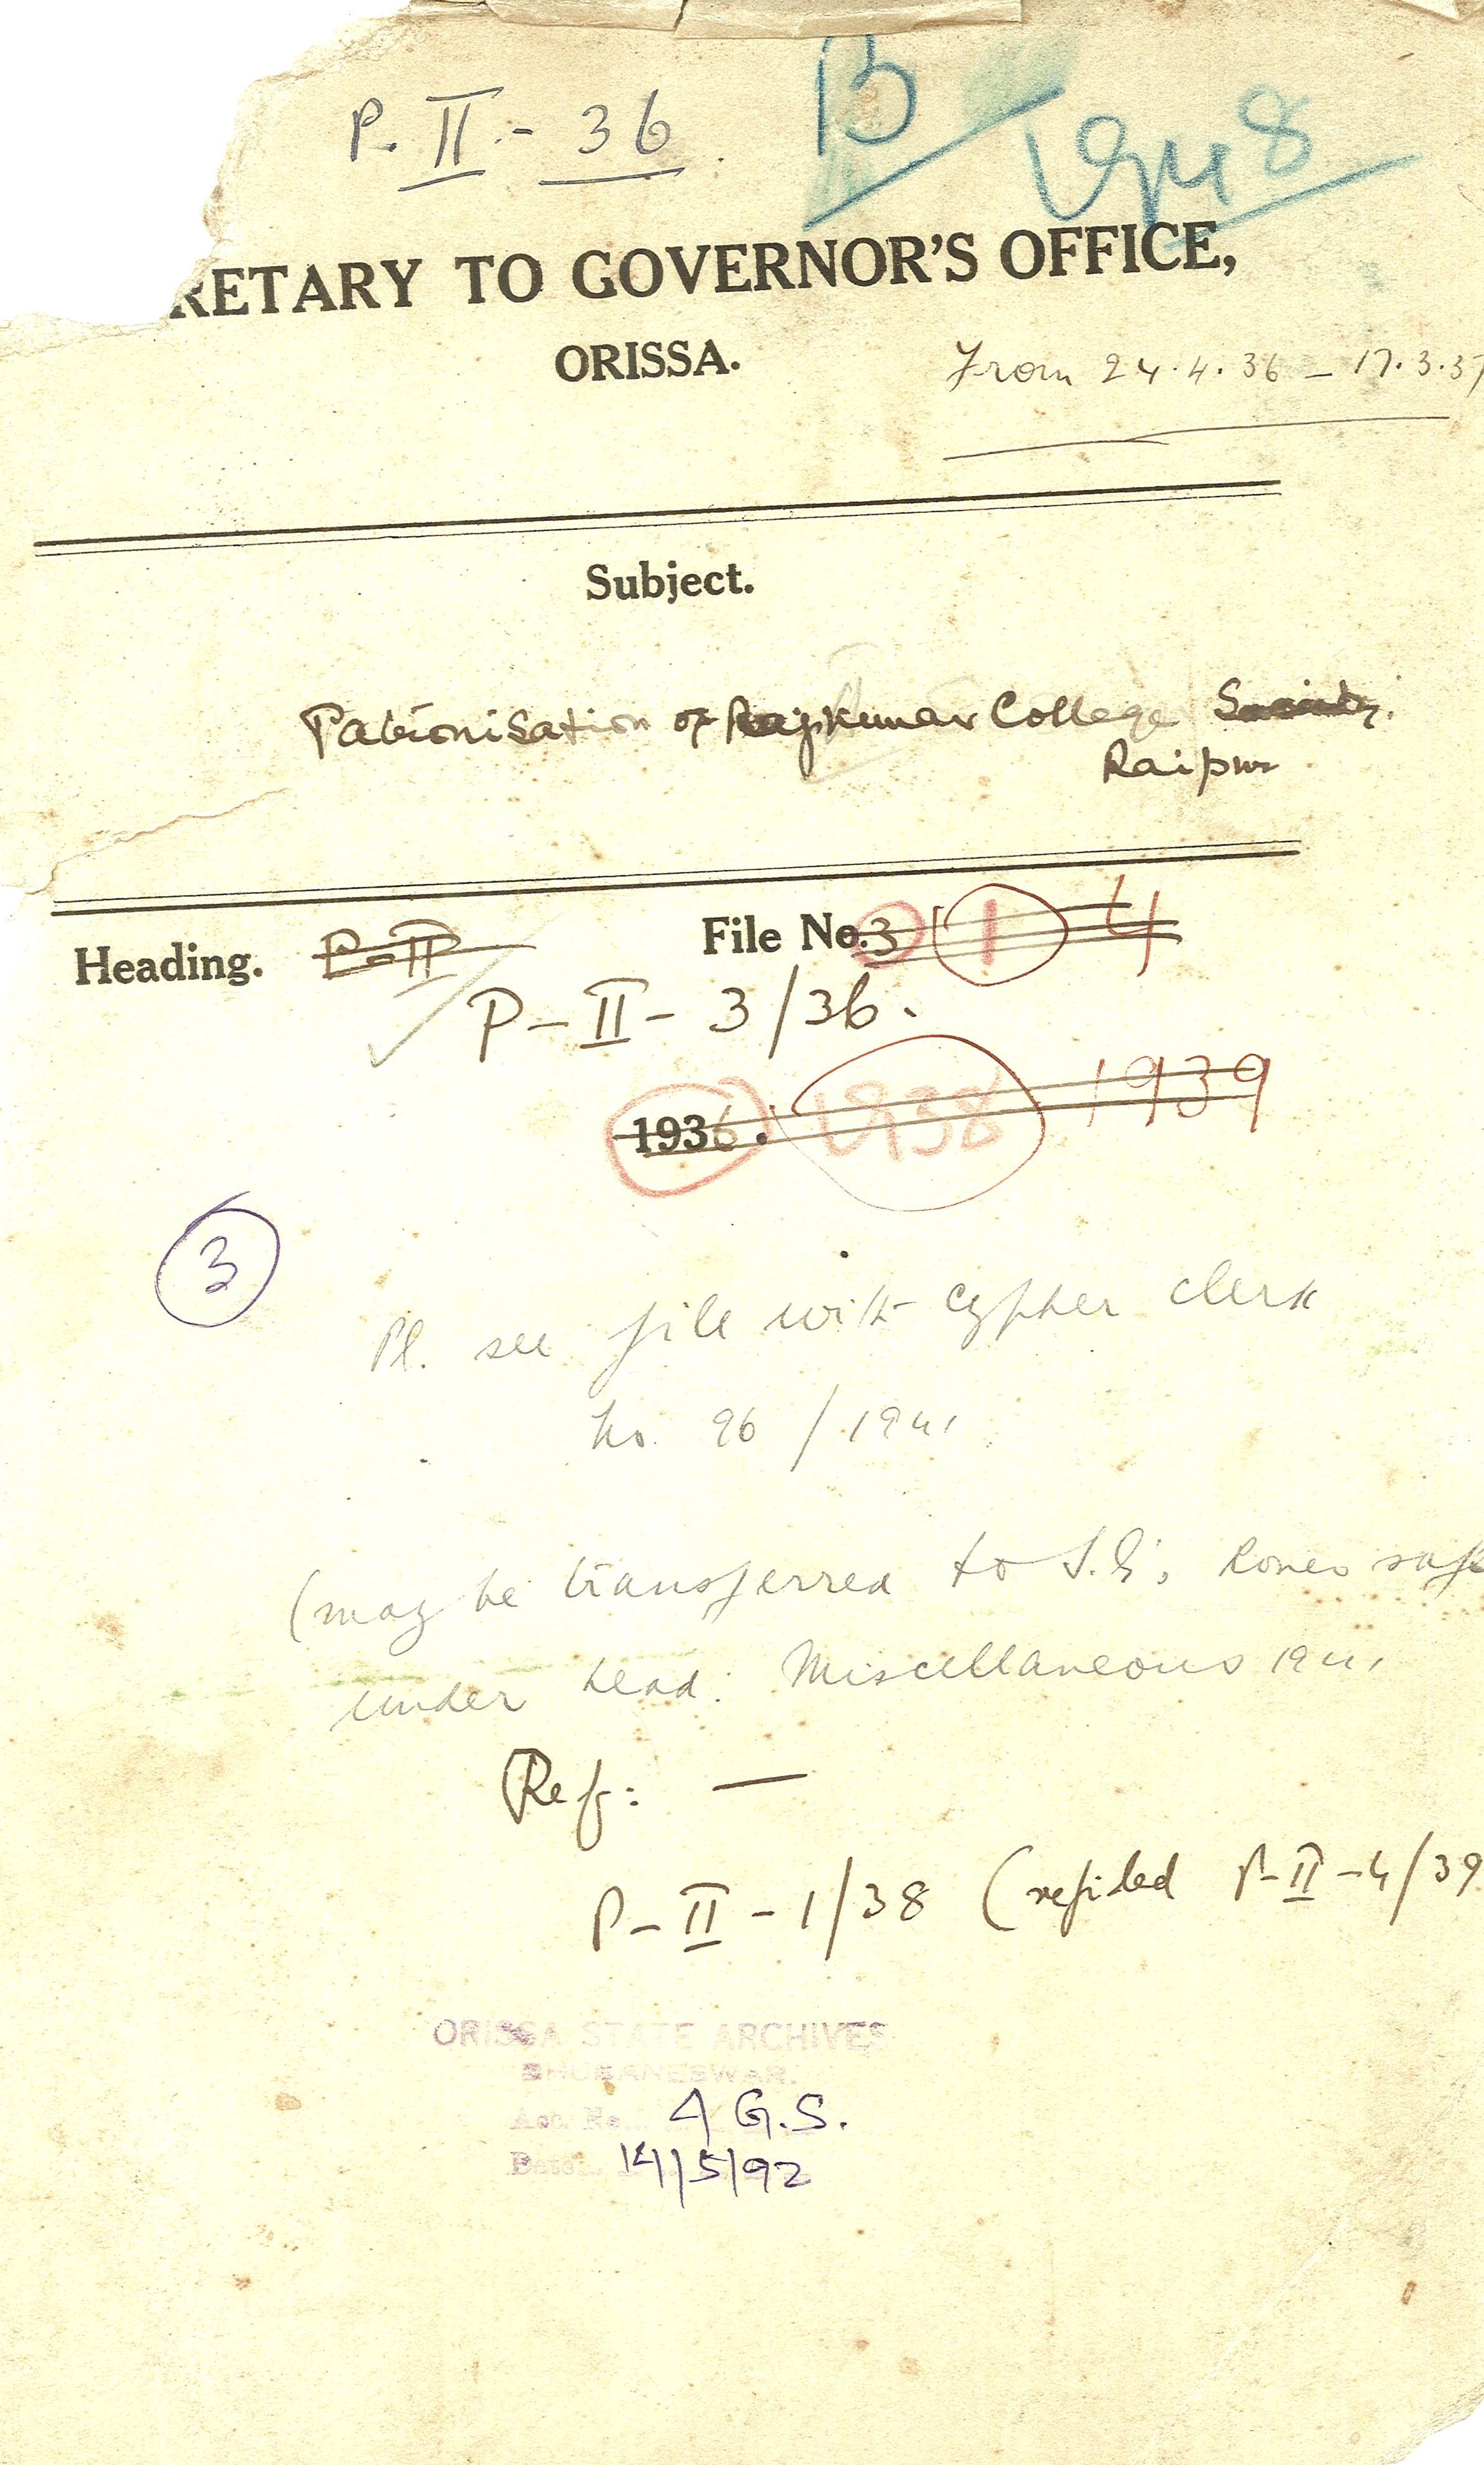 P. II - 36
B
1948
RETARY TO GOVERNOR'S OFFICE,
ORISSA.
From 24.4.36 - 17.3.37
Subject.
Patronisation of Rajkumar College Society.
Raipur
Heading. P-II File No. 3 1 4
P-II-3/36.
1936. 1938 1939
3
Pl. see file with cypher clerk
No. 96/1941
(may be transferred to safe
under head: Miscellaneous 1941
Ref: —
P-II-1/38 (refiled P-II-4/39
ORISSA STATE ARCHIVES
BHUBANESWAR.
Acc. No. 4 G.S.
Date. 14/5/92